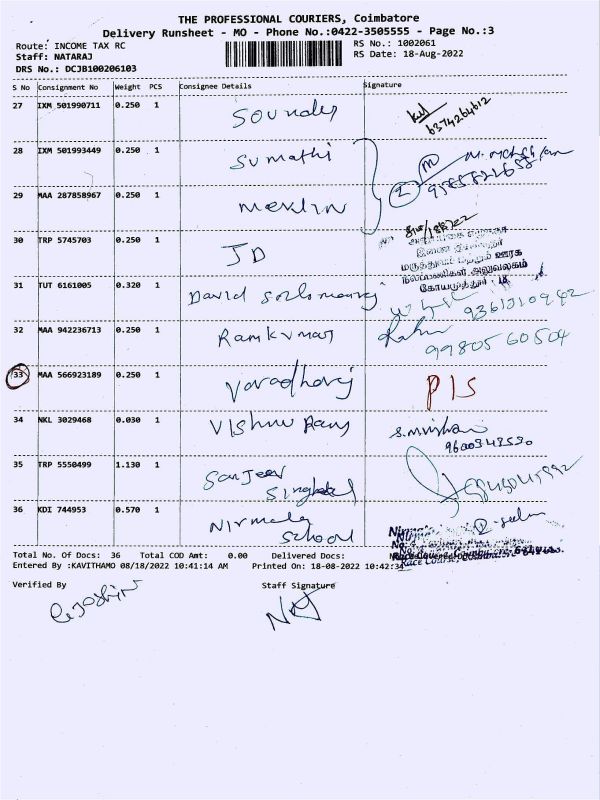 THE PROFESSIONAL COURIERS, Coimbatore
Delivery Runsheet - MO - Phone No.:0422-3505555 - Page No.:3
Route: INCOME TAX RC RS No.: 1002061
Staff: NATARAJ RS Date: 18-Aug-2022
DRS No.: DCJB100206103
S No Consignment No Weight PCS Consignee Details Signature
27 IXM 501990711 0.250 1
6374264612
28 IXM 501993449 0.250 1 Sumathi
29 MAA 287858967 0.250 1 Merlin
30 TRP 5745703 0.250 1 JD
மருத்துவம் மற்றும் ஊரக
நலப்பணிகள் அலுவலகம்
கோயமுத்தூர்
31 TUT 6161005 0.320 1 David
32 MAA 942236713 0.250 1 Ramkumar
9980560504
33 MAA 566923189 0.250 1 Varadharaj P/S
34 NKL 3029468 0.030 1 Vishnu Ram
35 TRP 5550499 1.130 1 Sanjeev
36 KDI 744953 0.570 1 Nirmala
School
Total No. Of Docs: 36 Total COD Amt: 0.00 Delivered Docs:
Entered By :KAVITHAMO 08/18/2022 10:41:14 AM Printed On: 18-08-2022 10:42:3
Verified By Staff Signature